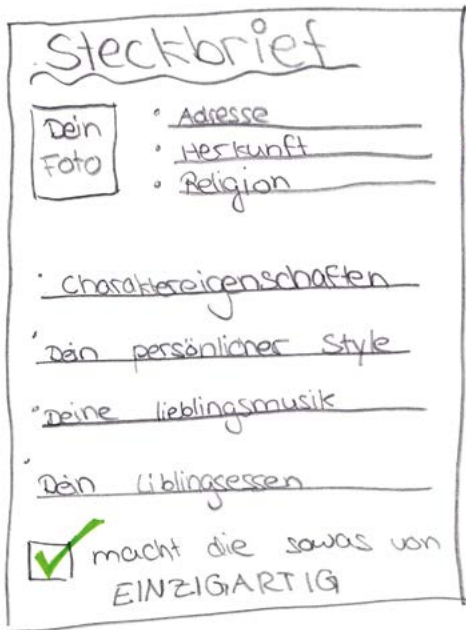 Steckbrief
Dein
Foto
Adresse
Herkunft
Religion
Charaktereigenschaften
Dein persönlicher Style
Deine lieblingsmusik
Dein Liblingsessen
macht die sowas von
EINZIGARTIG